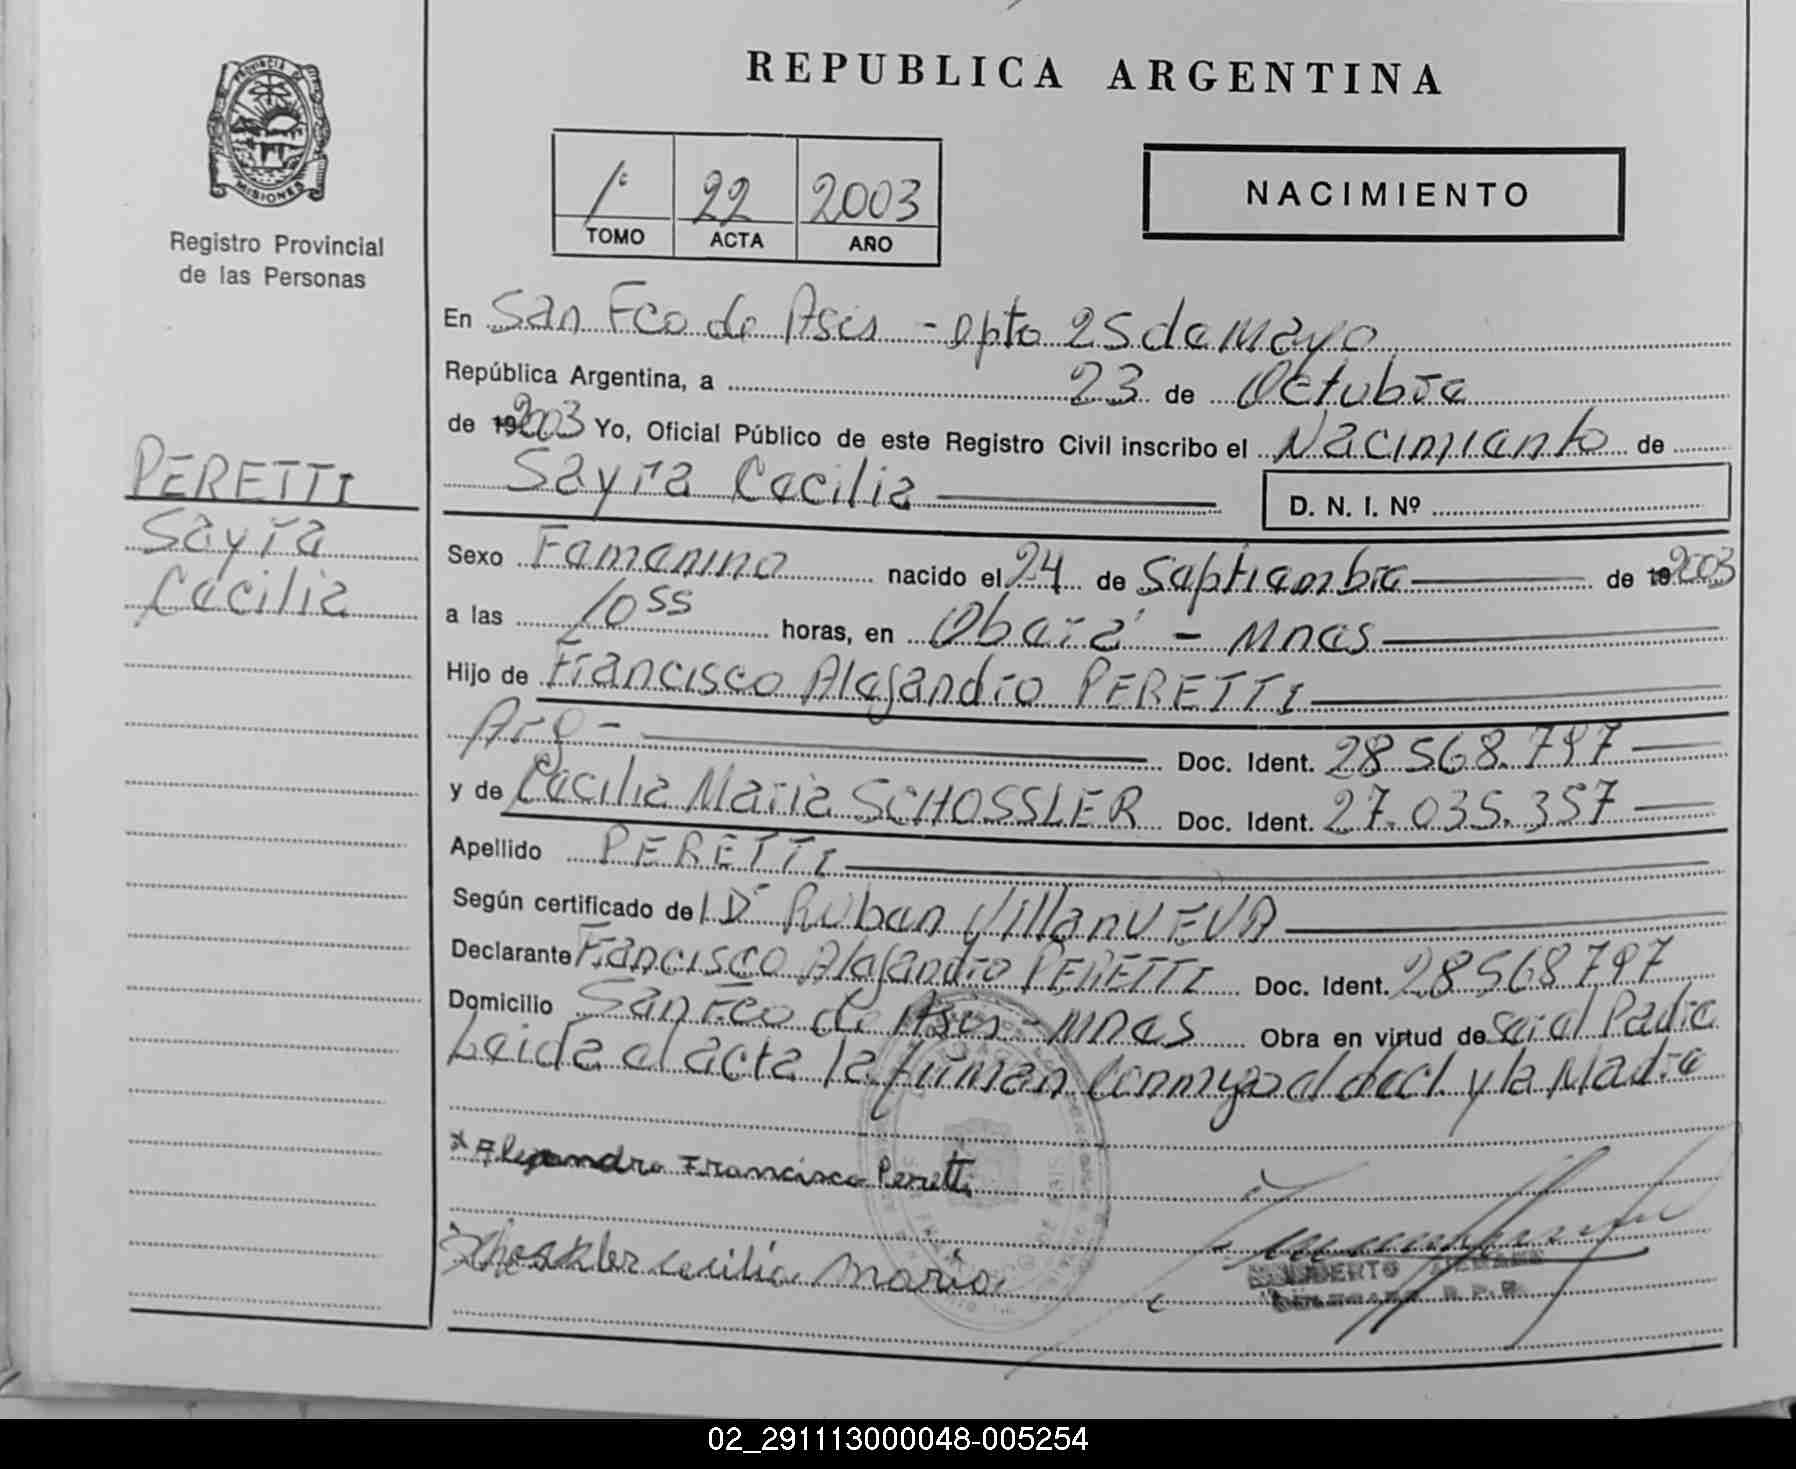 REPUBLICA ARGENTINA
PROVINCIA DE
MISIONES
Registro Provincial
de las Personas
1º 22 2003
TOMO ACTA AÑO
NACIMIENTO
PERETTI
Sayra
Cecilia
En San Fco de Asis - Dpto 25 de Mayo
República Argentina, a 23 de Octubre
de 19 2003 Yo, Oficial Público de este Registro Civil inscribo el Nacimiento de
Sayra Cecilia D. N. I. Nº
Sexo Femenino nacido el 24 de Septiembre de 19 2003
a las 10 55 horas, en Oberá - Mnes
Hijo de Francisco Alejandro PERETTI
Arg - Doc. Ident. 28.568.797
y de Cecilia Maria SCHOSSLER Doc. Ident. 27.035.357
Apellido PERETTI
Según certificado del Dr Ruben VillanUEVA
Declarante Francisco Alejandro PERETTI Doc. Ident. 28568797
Domicilio San Fco de Asis - Mnes Obra en virtud de Ser el Padre
Leida el acta la firman Conmigo el decl. y la Madre
x Alejandro Francisco Peretti
x Schossler Cecilia Maria
R. P. P.
02_291113000048-005254